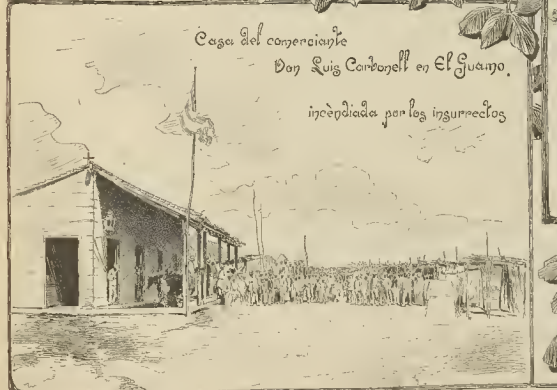 Casa del comerciante
Don Luis Carbonell en El Guamo.
incèndiada por los insurrectos